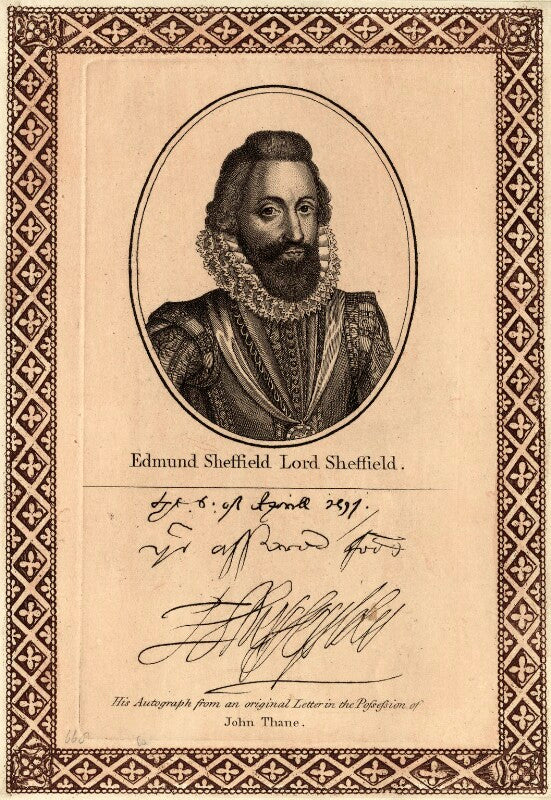 Edmund Sheffield Lord Sheffield.
of Aprill
yͬ assured
His Autograph from an original Letter in the Poſseſsion of
John Thane.